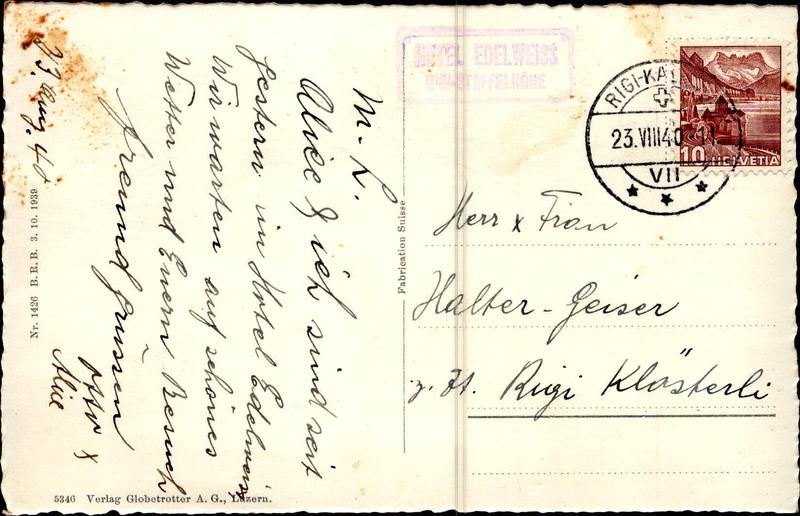 23. Aug. 40
M. L.
Alice & ich sind seit
gestern im Hotel Edelweiss
Wir warten auf schönes
Wetter und Euern Besuch
freundl. grüssen
Otto &
Alice
Nr. 1426 B.R.B. 3. 10. 1939
5346 Verlag Globetrotter A. G., Luzern.
Fabrication Suisse
HOTEL EDELWEISS
RIGI-STAFFELHÖHE
RIGI-KAL
23.VIII40-11
VII
10 HELVETIA
Herr & Frau
Halter-Geiser
z. Zt. Rigi Klösterli